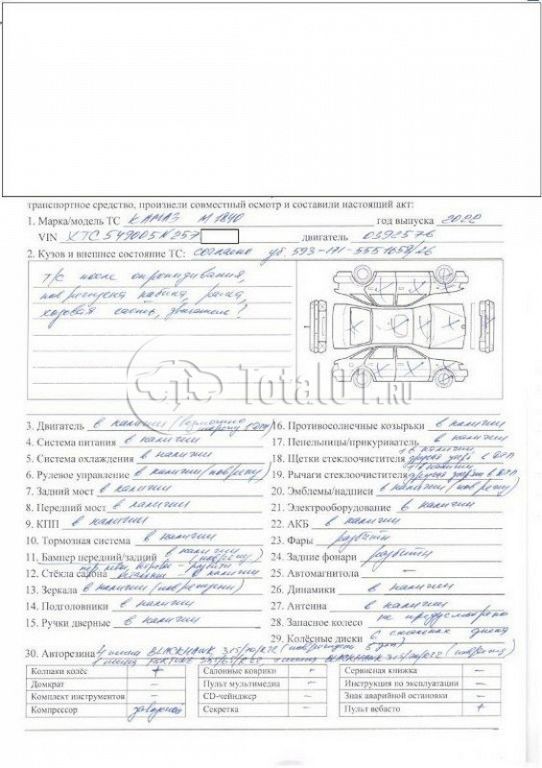 транспортное средство, произвели совместный осмотр и составили настоящий акт:
1. Марка/модель ТС КАМАЗ М1840 год выпуска 2022
VIN XTC549005N257 двигатель
2. Кузов и внешнее состояние ТС: согласно уб. 593-171-
т/с после опрокидывания,
повреждена кабина, рама,
ходовая часть, двигатель?
Total01.ru
3. Двигатель в наличии (возможно
4. Система питания в наличии
5. Система охлаждения в наличии
6. Рулевое управление в наличии (поврежд)
7. Задний мост в наличии
8. Передний мост в наличии
9. КПП в наличии
10. Тормозная система в наличии
11. Бампер передний/задний в наличии (поврежд)
12. Стёкла салона в наличии
13. Зеркала в наличии (повреждены)
14. Подголовники в наличии
15. Ручки дверные в наличии
16. Противосолнечные козырьки в наличии
17. Пепельницы/прикуриватель в наличии
18. Щетки стеклоочистителя в наличии
19. Рычаги стеклоочистителя в наличии
20. Эмблемы/надписи в наличии (поврежд)
21. Электрооборудование в наличии
22. АКБ в наличии
23. Фары разбиты
24. Задние фонари разбиты
25. Автомагнитола —
26. Динамики в наличии
27. Антенна в наличии
28. Запасное колесо не предусмотрено
29. Колёсные диски 6 стальных диска
30. Авторезина 4 шины BLACKHAWK 315/70/R22 (повреждения
BLACKHAWK 315/70/R22 (поврежд)
Колпаки колёс + Салонные коврики – Сервисная книжка –
Домкрат – Пульт мультимедиа – Инструкция по эксплуатации –
Комплект инструментов – CD-чейнджер – Знак аварийной остановки –
Компрессор заводской Секретка – Пульт вебасто +